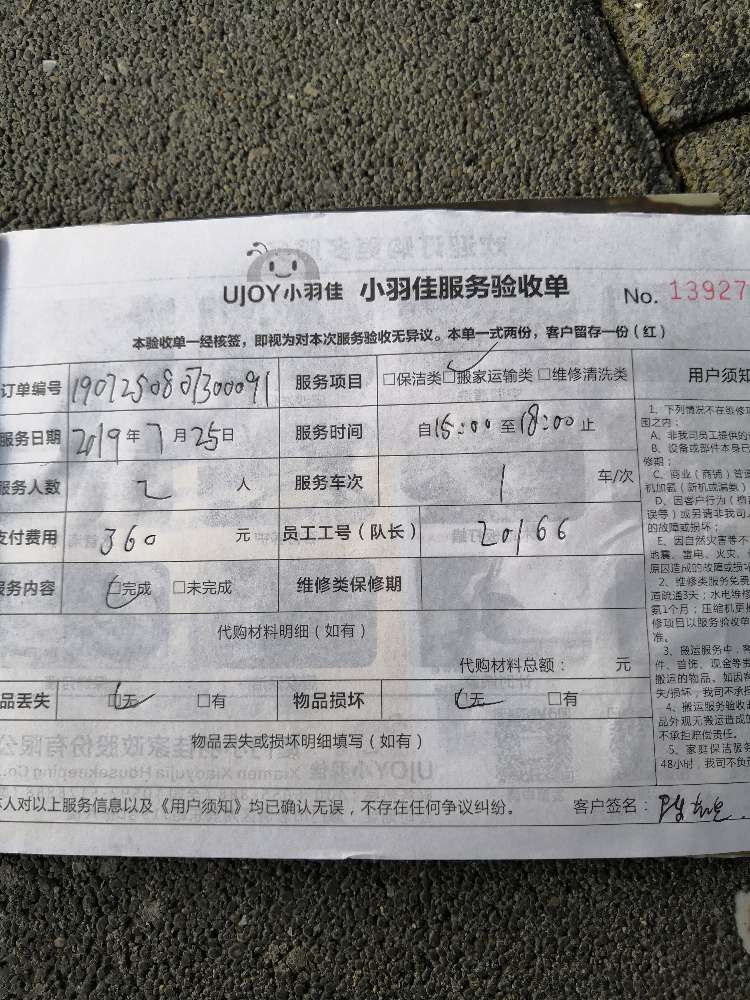 UJOY小羽佳 小羽佳服务验收单 No. 13927
本验收单一经核签，即视为对本次服务验收无异议。本单一式两份，客户留存一份（红）
订单编号 1907250807300091 服务项目 □保洁类 □搬家运输类 □维修清洗类 用户须知
服务日期 2019年7月25日 服务时间 自15:00至18:00止
服务人数 2 人 服务车次 1 车/次
支付费用 360 元 员工工号（队长） 20166
服务内容 □完成 □未完成 维修类保修期
代购材料明细（如有）
代购材料总额： 元
品丢失 □无 □有 物品损坏 □无 □有
物品丢失或损坏明细填写（如有）
本人对以上服务信息以及《用户须知》均已确认无误，不存在任何争议纠纷。 客户签名：
1、下列情况不在维修
围之内：
A、非我司员工提供的
B、设备或部件本身已
修期；
C、商业（商铺）管道
机加氨（新机或漏氨）
D、因客户行为（
误等）或另请非我司人
的故障或损坏；
E、因自然灾害等不
地震、雷电、火灾、
原因造成的故障或损坏
2、维修类服务免费
道疏通3天；水电维修
氨1个月；压缩机更换
修项目以服务验收单
准。
3、搬运服务中，客
件、首饰、现金等贵
搬运的物品。如因客
失/损坏，我司不承担
4、搬运服务验收
品外观无搬运造成的
不承担赔偿责任。
5、家庭保洁服务
48小时，我司不负责